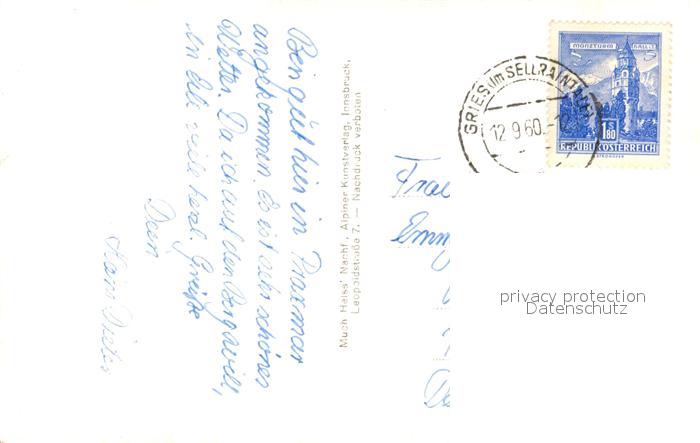 Bin gut hier in Praxmar
angekommen. Es ist sehr schönes
Wetter. Da ich auf den Berg will,
viele herzl. Grüße
Dein
Hans Dieter
Much Heiss' Nachf., Alpiner Kunstverlag, Innsbruck,
Leopoldstraße 7. — Nachdruck verboten
GRIES IM SELLRAINTAL
12.9.60.-12
MÜNZTURM HALL i. T.
1 S 80
REPUBLIK ÖSTERREICH
Frau
Emmy
privacy protection
Datenschutz